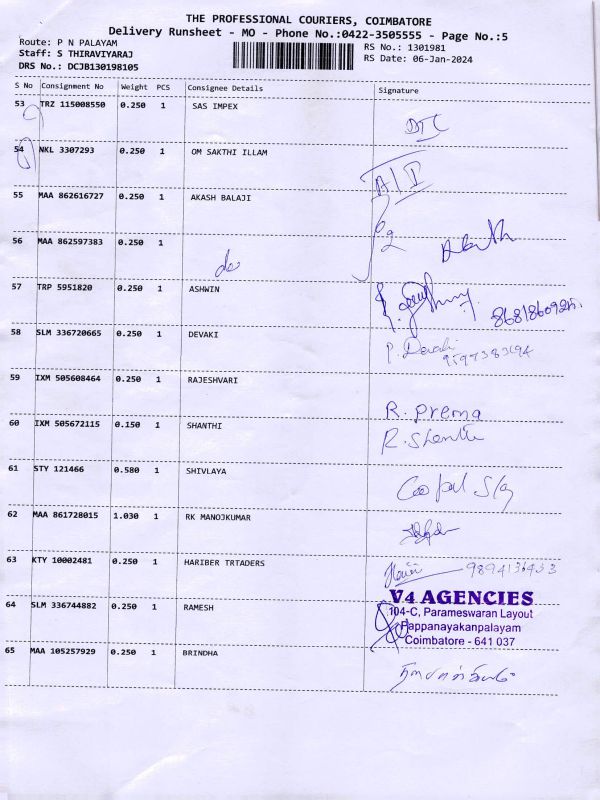 THE PROFESSIONAL COURIERS, COIMBATORE
Delivery Runsheet - MO - Phone No.:0422-3505555 - Page No.:5
Route: P N PALAYAM
Staff: S THIRAVIYARAJ
DRS No.: DCJB130198105
RS No.: 1301981
RS Date: 06-Jan-2024
S No Consignment No Weight PCS Consignee Details Signature
53 TRZ 115008550 0.250 1 SAS IMPEX
54 NKL 3307293 0.250 1 OM SAKTHI ILLAM
55 MAA 862616727 0.250 1 AKASH BALAJI
56 MAA 862597383 0.250 1 do
57 TRP 5951820 0.250 1 ASHWIN
58 SLM 336720665 0.250 1 DEVAKI P. Devaki
59 IXM 505608464 0.250 1 RAJESHVARI R. Prema
60 IXM 505672115 0.150 1 SHANTHI R. Shanthi
61 STY 121466 0.580 1 SHIVLAYA
62 MAA 861728015 1.030 1 RK MANOJKUMAR
63 KTY 10002481 0.250 1 HARIBER TRTADERS
V4 AGENCIES
104-C, Parameswaran Layout
Pappanayakanpalayam
Coimbatore - 641 037
64 SLM 336744882 0.250 1 RAMESH
65 MAA 105257929 0.250 1 BRINDHA